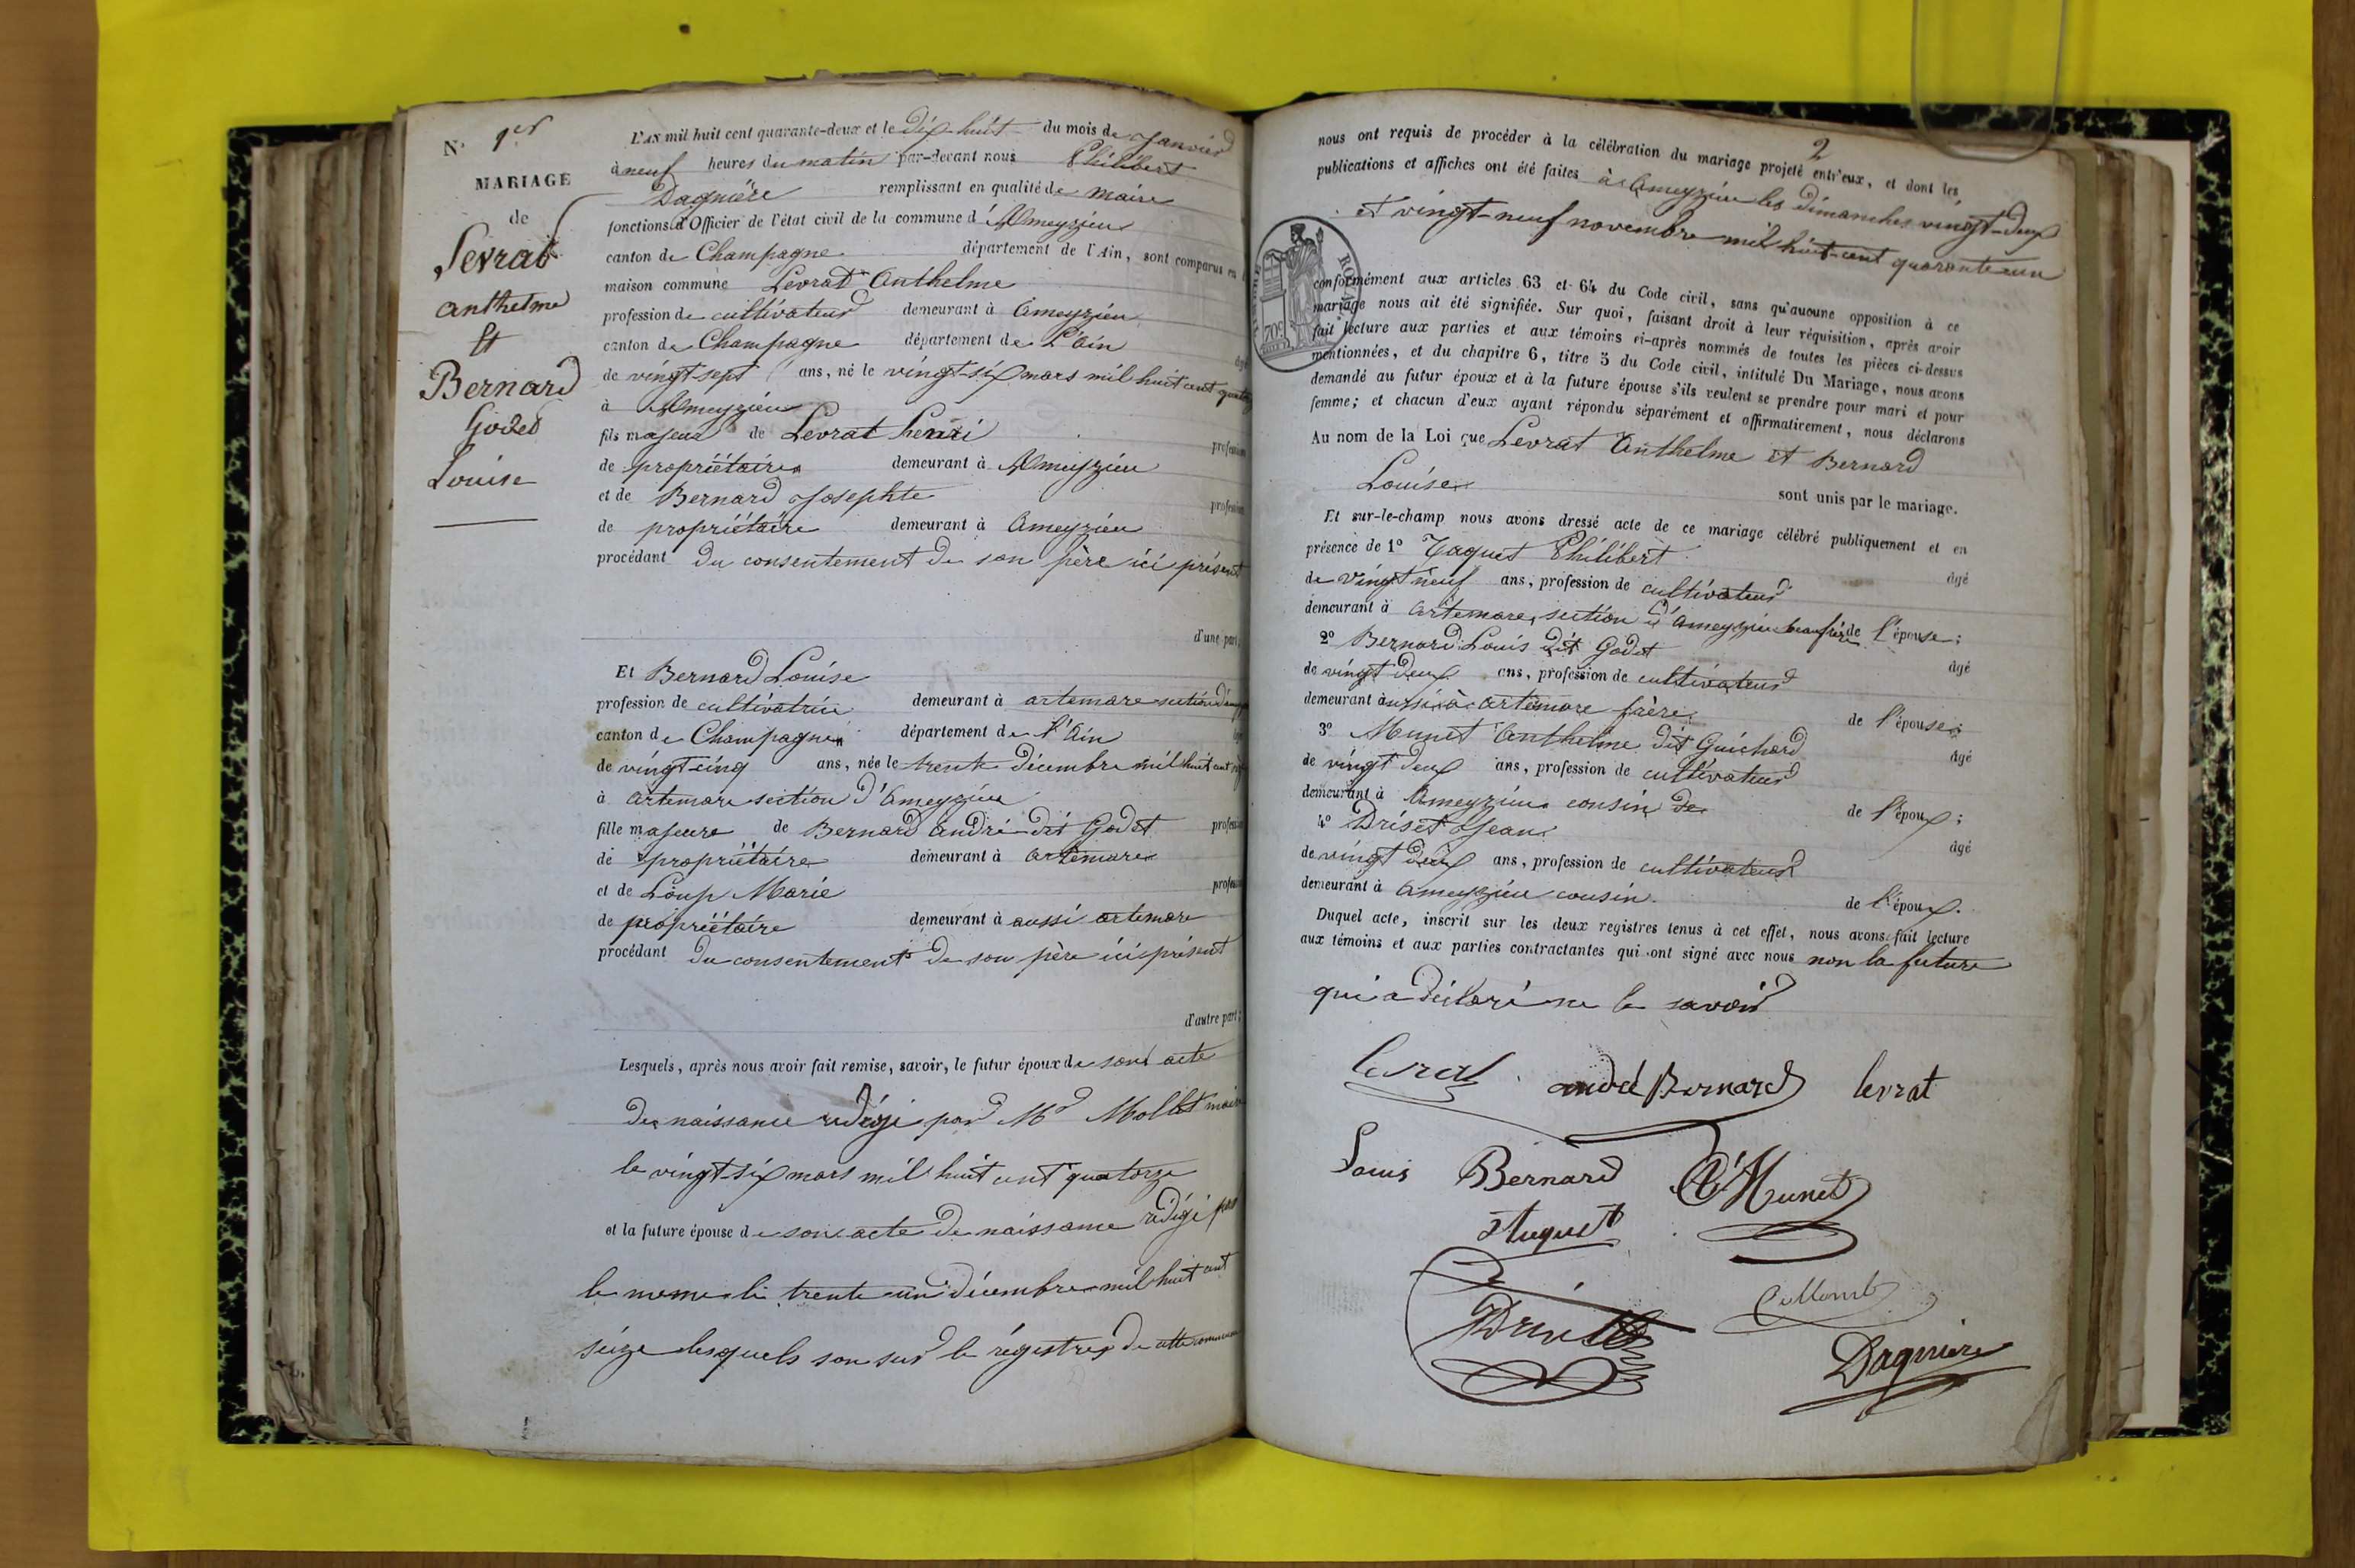 N.° 1er
MARIAGE
de
Levrat
anthelme
Et
Bernard
Godet
Louise
L'AN mil huit cent quarante-deux et le dix-huit du mois de Janvier
à neuf heures du matin par-devant nous Philibert
Dagnière remplissant en qualité de maire
fonctions d'Officier de l'état civil de la commune d'Ameyzieu
canton de Champagne département de l'Ain, sont comparus en
maison commune Levrat Anthelme
profession de cultivateur demeurant à Ameyzieu
canton de Champagne département de L'ain âgé
de vingt-sept ans, né le vingt-six mars mil huit cent quatorze
à Ameyzieu
fils majeur de Levrat henri profession
de propriétaire demeurant à Ameyzieu
et de Bernard Josephte profession
de propriétaire demeurant à Ameyzieu
procédant du consentement de son père ici présent
d'une part;
Et Bernard Louise
profession de cultivatrice demeurant à artemare section d'
canton de Champagne département de l'Ain
de vingt-cinq ans, née le trente décembre mil huit cent
à artemare section d'Ameyzieu
fille majeure de Bernard andré dit Godet profession
de propriétaire demeurant à artemare
et de Loup Marie profession
de propriétaire demeurant à aussi artemare
procédant du consentement de son père ici présent
d'autre part;
Lesquels, après nous avoir fait remise, savoir, le futur époux de son acte
de naissance rédigé par Mr Mollet maire
le vingt-six mars mil huit cent quatorze
et la future épouse de son acte de naissance rédigé par
le meme le trente un décembre mil huit cent
seize lesquels son sur le régistres de cette commune
2
nous ont requis de procéder à la célébration du mariage projeté entr'eux, et dont les
publications et affiches ont été faites à Ameyzieu les dimanches vingt-deux
et vingt-neuf novembre mil huit-cent quarante un
conformément aux articles 63 et 64 du Code civil, sans qu'aucune opposition à ce
mariage nous ait été signifiée. Sur quoi, faisant droit à leur réquisition, après avoir
fait lecture aux parties et aux témoins ci-après nommés de toutes les pièces ci-dessus
mentionnées, et du chapitre 6, titre 5 du Code civil, intitulé Du Mariage, nous avons
demandé au futur époux et à la future épouse s'ils veulent se prendre pour mari et pour
femme; et chacun d'eux ayant répondu séparément et affirmativement, nous déclarons
Au nom de la Loi que Levrat Anthelme et Bernard
Louise sont unis par le mariage.
Et sur-le-champ nous avons dressé acte de ce mariage célébré publiquement et en
présence de 1° Taquet Philibert âgé
de vingt neuf ans, profession de cultivateur
demeurant à artemare, section d'Ameyzieu beaufrère de l'épouse;
2° Bernard Louis dit Godet âgé
de vingt deux ans, profession de cultivateur
demeurant aussi à artemare frère de l'épouse;
3° Munet Anthelme dit Guichard âgé
de vingt deux ans, profession de cultivateur
demeurant à Ameyzieu cousin de de l'époux;
4° Driset Jean âgé
de vingt deux ans, profession de cultivateur
demeurant à Ameyzieu cousin de l'époux.
Duquel acte, inscrit sur les deux registres tenus à cet effet, nous avons fait lecture
aux témoins et aux parties contractantes qui ont signé avec nous non la future
qui a déclaré ne le savoir
levrat andré Bernard levrat
Louis Bernard A Munet
Driset
Dagnière